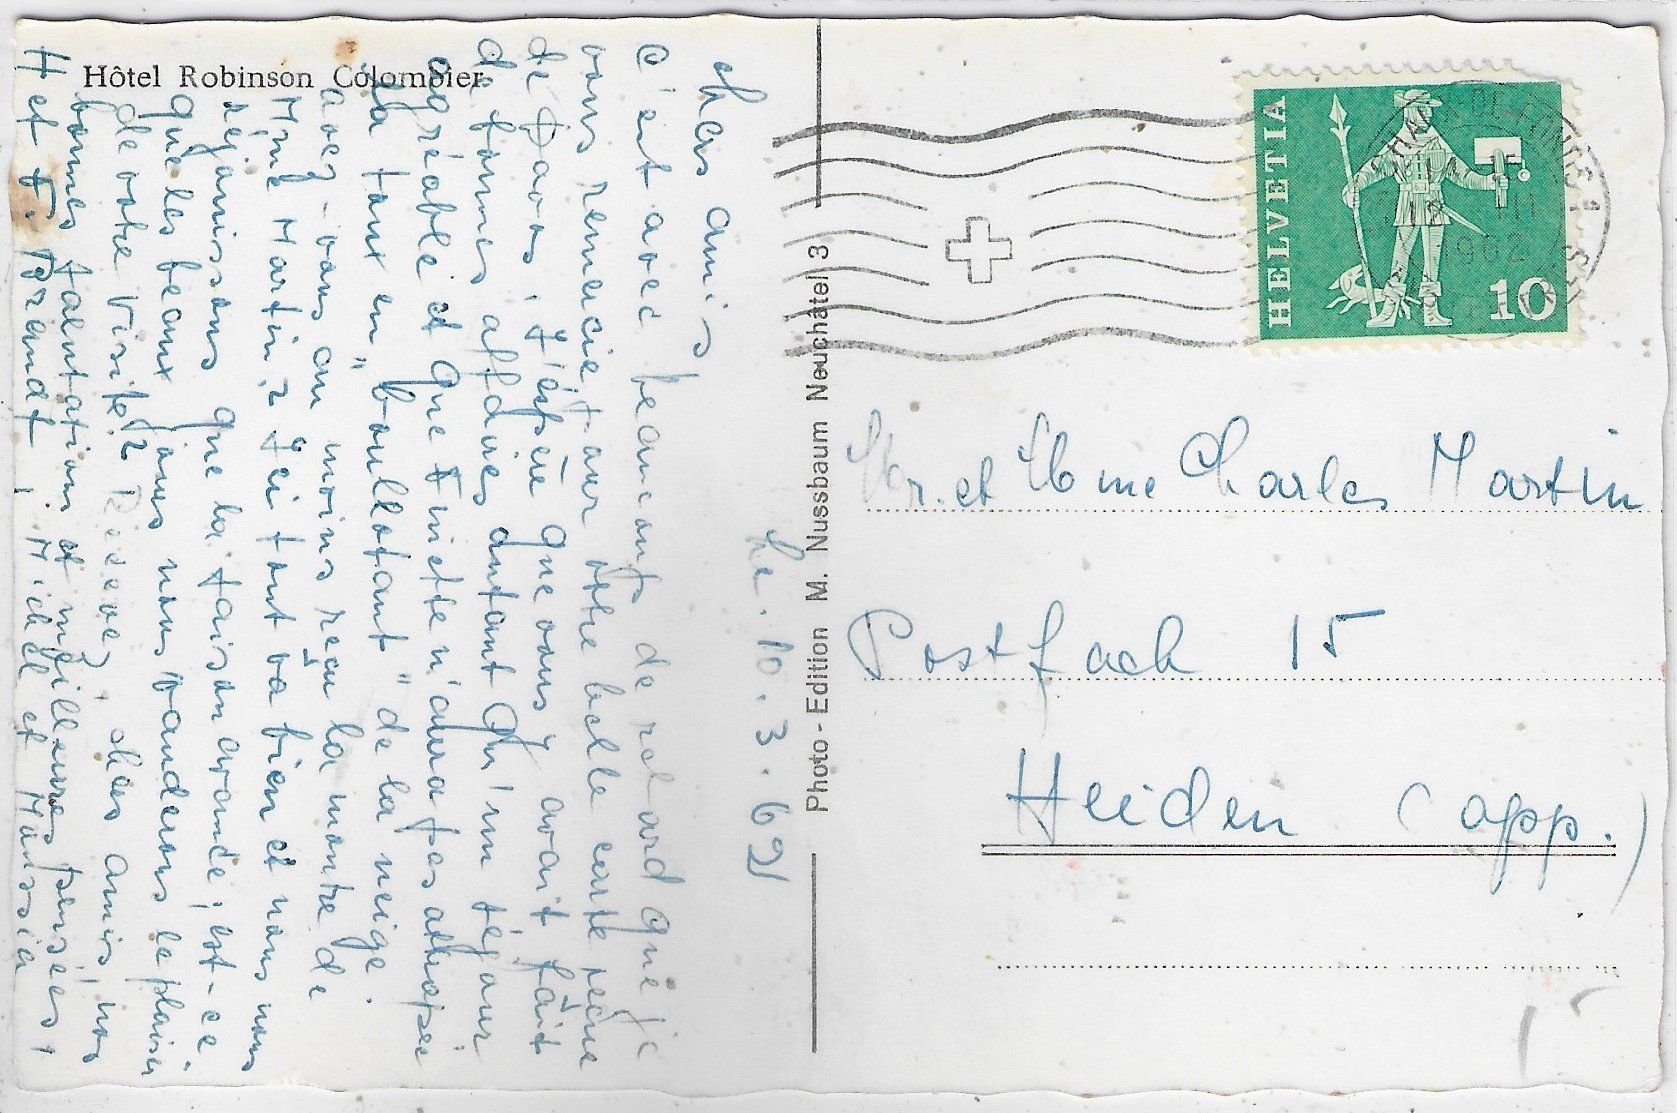 Hôtel Robinson Colombier
Le. 10. 3. 62
chers amis
C'est avec beaucoup de retard que je
vous remercie pour votre belle carte reçue
de Davos, j'espère que vous y avait fait
de bonnes affaires autant qu'un séjour
agréable et que Finette n'aura pas attrapée
la toux en "boullotant" de la neige.
avez-vous au moins reçu la montre de
Mme Martin? Ici tout va bien et nous nous
réjouissons que la saison avance, est-ce
que les beaux jours nous vaudrons le plaisir
de votre visite? Recevez, chers amis, nos
bonnes salutations et meilleures pensées,
H et F. Brandt, Michel et Moussia
Photo - Edition M. Nussbaum Neuchâtel 3
HELVETIA
10
1962
Mr. et Mme Charles Martin
Postfach 15
Heiden (app.)